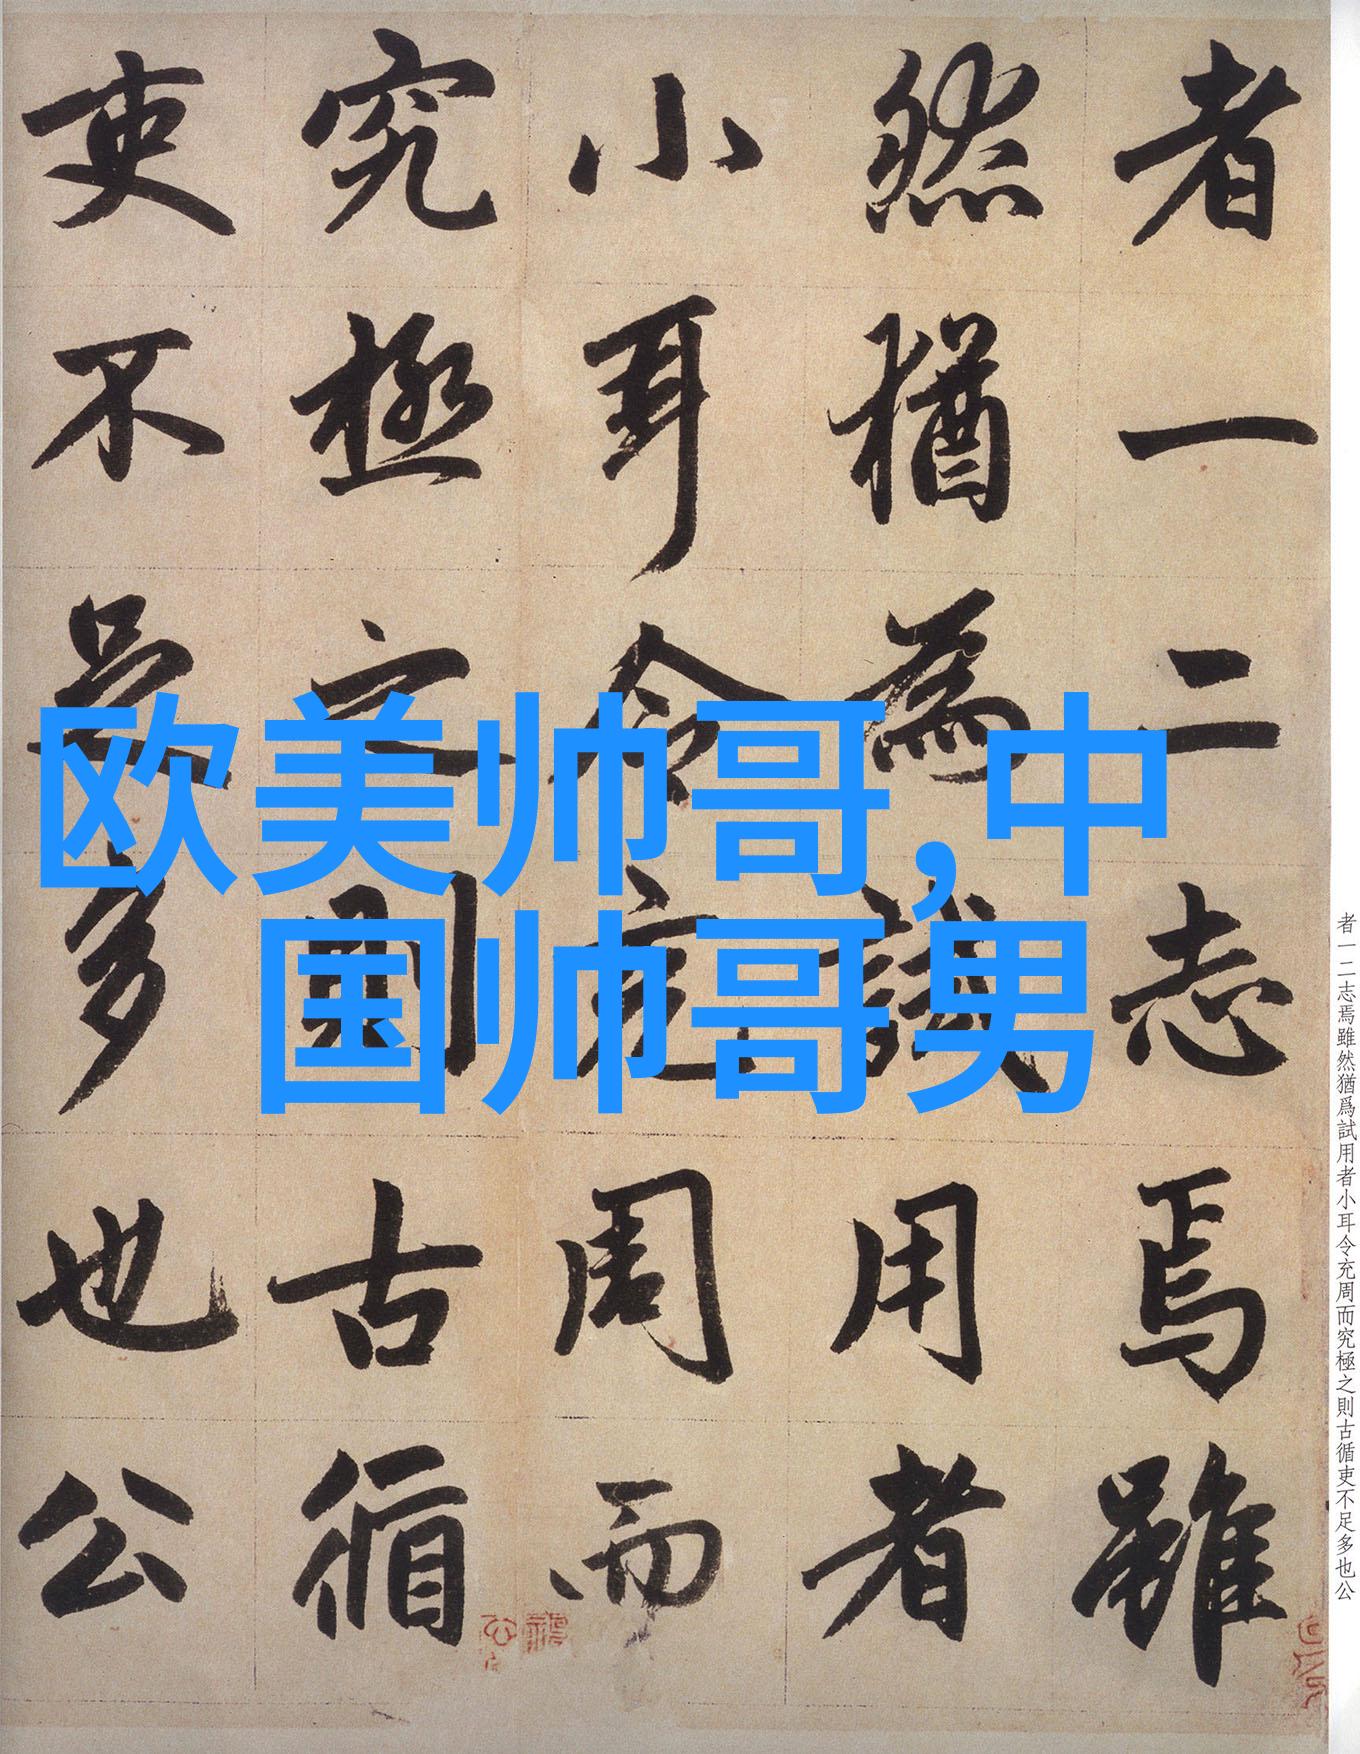 者一二志焉雖
然猶為試用者
小耳令充周而
究極之則古循
吏不足多也公
欧美帅哥,中
国帅哥男
者一二志焉雖然猶爲試用者小耳令充周而究極之則古循吏不足多也公